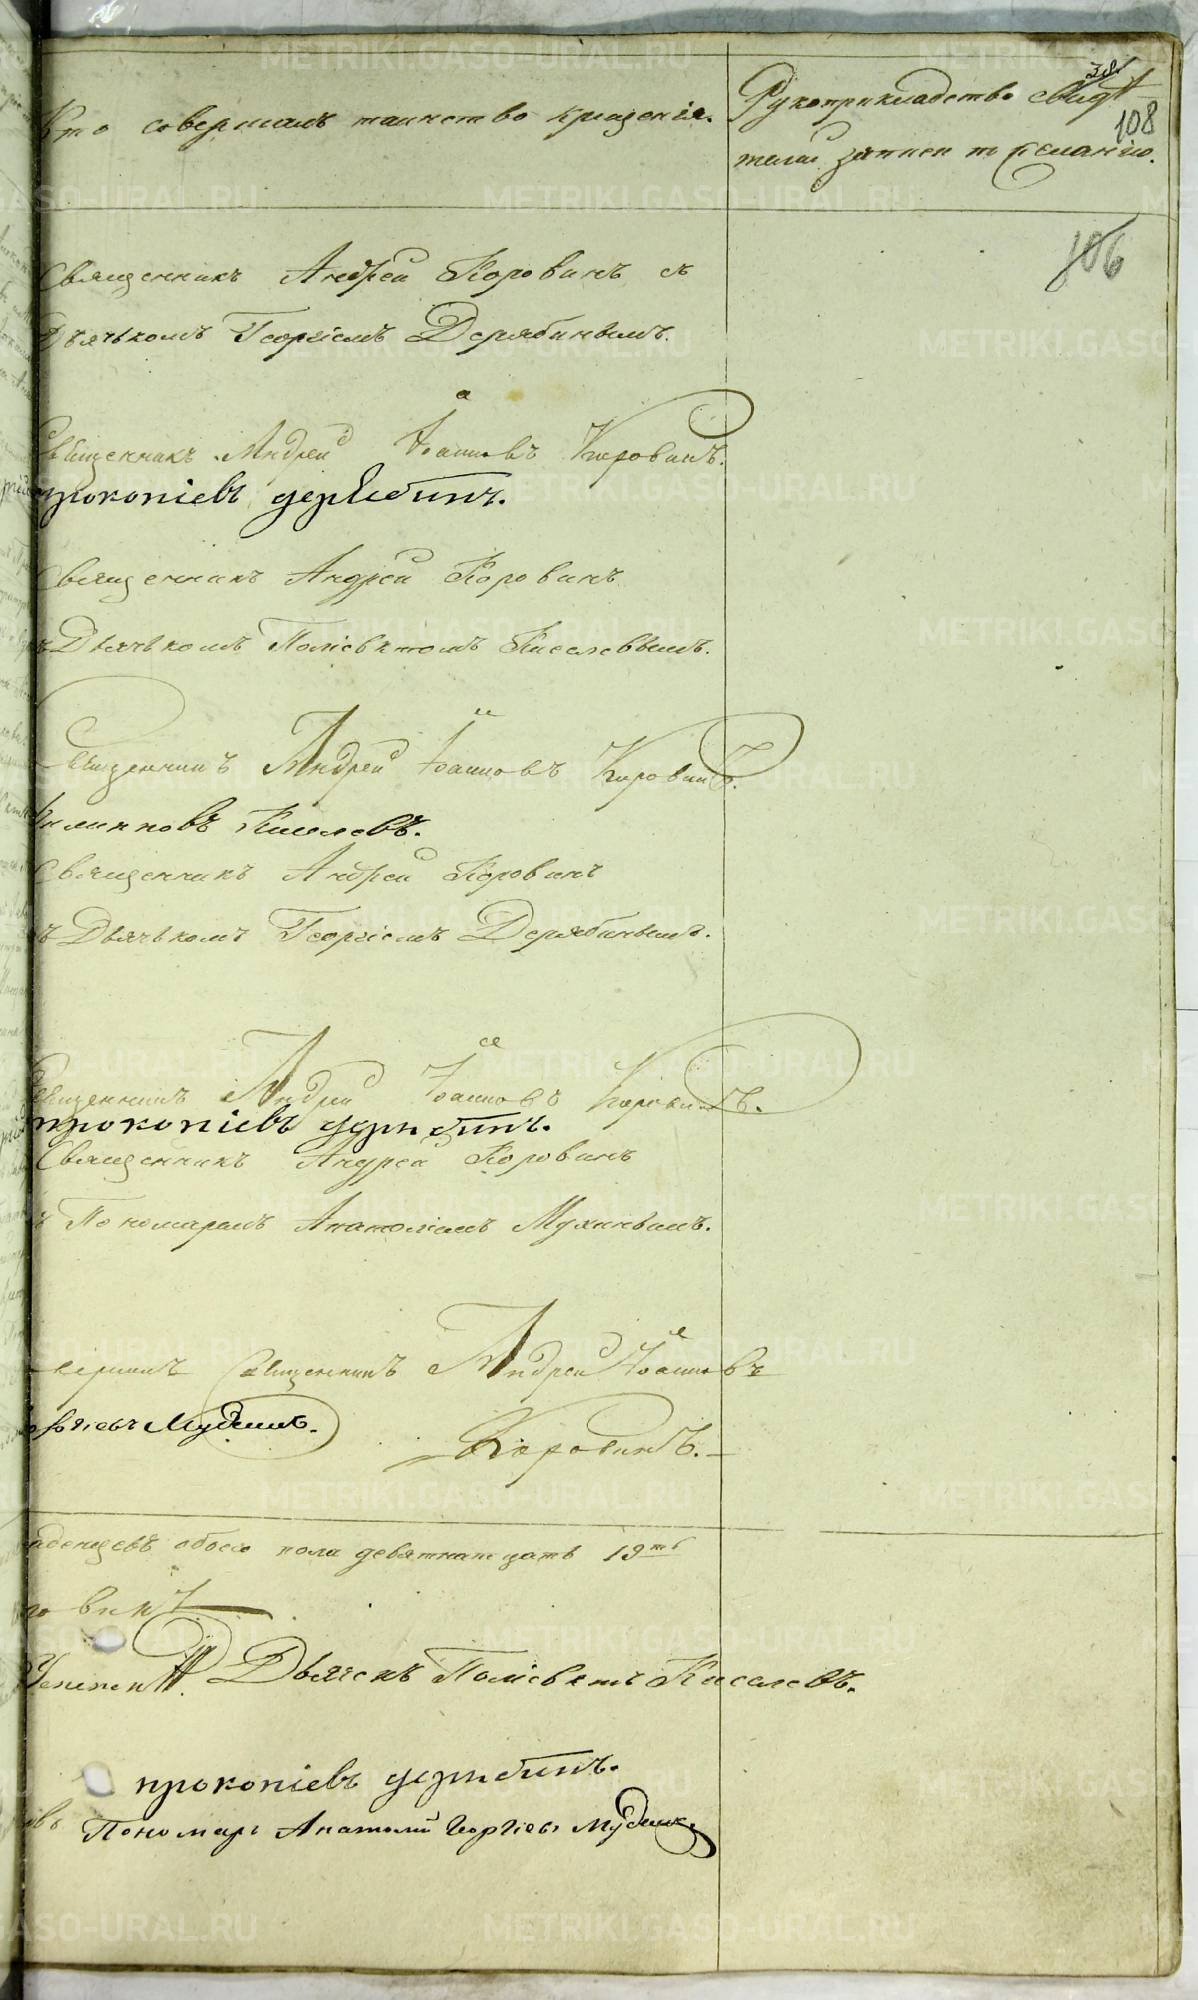 Кто совершалъ таинство крещенія.
Рукоприкладство свидѣ
38
108
телей записи по желанію.
106
Священникъ Андрей Коровинъ съ
Дьячькомъ Георгіемъ Дерябинымъ.
Священникъ Андрей Іоанновъ Коровинъ.
прокопіевъ дерябинъ.
Священникъ Андрей Коровинъ
ъ Дьячькомъ Поліевктомъ Киселевымъ.
Священникъ Андрей Іоанновъ Коровинъ.
Киселевъ.
Священникъ Андрей Коровинъ
ъ Дьячькомъ Георгіемъ Дерябинымъ.
Священникъ Андрей Іоанновъ Коровинъ.
прокопіевъ дерябинъ.
Священникъ Андрей Коровинъ
ъ Пономаремъ Анатоліемъ
Священникъ Андрей Іоанновъ
Коровинъ.
аденцевъ обоего пола девятнатцать 19ть
ровинъ
Дьячекъ Поліевктъ Киселевъ.
прокопіевъ дерябинъ.
Пономарь Анатолий Георгіевъ
METRIKI.GASO-URAL.RU